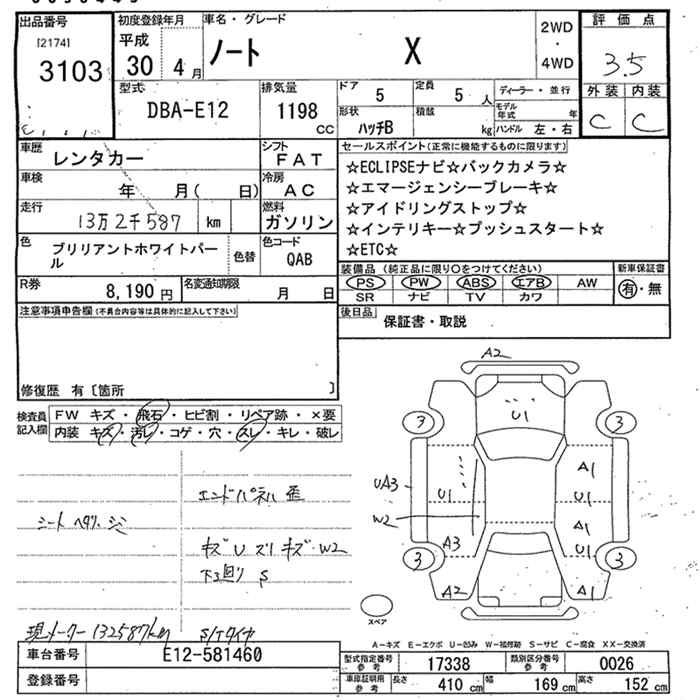 出品番号
[2174]
3103
初度登録年月
平成
30 年 4 月
車名・グレード
ノート X
2WD
・
4WD
評価点
3.5
外装 内装
C C
型式
DBA-E12
排気量
1198
cc
ドア
5
定員
5 人
形状
ハッチB
積載
kg
ディーラー・並行
モデル年式 年
ハンドル 左・右
車歴
レンタカー
シフト
FAT
車検
年 月( 日)
冷房
AC
走行
13万2千587 km
燃料
ガソリン
色
ブリリアントホワイトパール
色替
色コード
QAB
R券
8,190 円
名変通知期限
月 日
セールスポイント(正常に機能するものに限ります)
☆ECLIPSEナビ☆バックカメラ☆
☆エマージェンシーブレーキ☆
☆アイドリングストップ☆
☆インテリキー☆プッシュスタート☆
☆ETC☆
装備品(純正品に限り○をつけてください)
新車保証書
PS PW ABS エアB AW
SR ナビ TV カワ
有・無
後日品
保証書・取説
注意事項申告欄(不具合内容等は具体的に記入して下さい)
修復歴 有〔箇所 〕
検査員記入欄
FW キズ・飛石・ヒビ割・リペア跡・×要
内装 キズ・汚レ・コゲ・穴・スレ・キレ・破レ
エンドパネル 歪
シート ヘタリ、シミ
キズ U ズリキズ W2
下廻り S
現メーター 132587km S/Tタイヤ
A2
U1
3 3
A1
UA3
U1
U1
W2
A1
A3
U1
3 3
A2
A1
スペア
A-キズ E-エクボ U-凹み W-補修跡 S-サビ C-腐食 XX-交換済
車台番号
E12-581460
登録番号
型式指定番号
参考
17338
類別区分番号
参考
0026
車庫証明用
参考
長さ 410 cm 幅 169 cm 高さ 152 cm